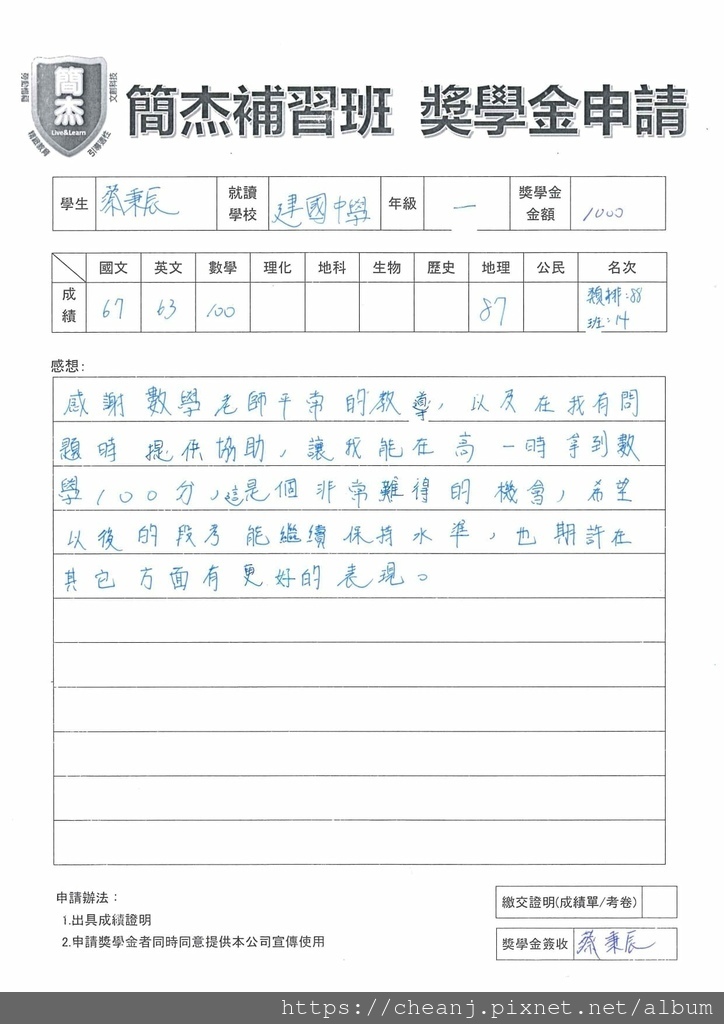 簡杰
Live&Learn
精緻教育
引導適性
簡杰補習班 獎學金申請
學生 蔡秉辰 就讀學校 建國中學 年級 一 獎學金金額 1000
國文 英文 數學 理化 地科 生物 歷史 地理 公民 名次
成績 67 63 100 87 類排:88
班:14
感想:
感謝數學老師平常的教導,以及在我有問
題時提供協助,讓我能在高一時拿到數
學100分,這是個非常難得的機會,希望
以後的段考能繼續保持水準,也期許在
其它方面有更好的表現。
申請辦法:
1.出具成績證明
2.申請獎學金者同時同意提供本公司宣傳使用
繳交證明(成績單/考卷)
獎學金簽收 蔡秉辰
https://cheanj.pixnet.net/album